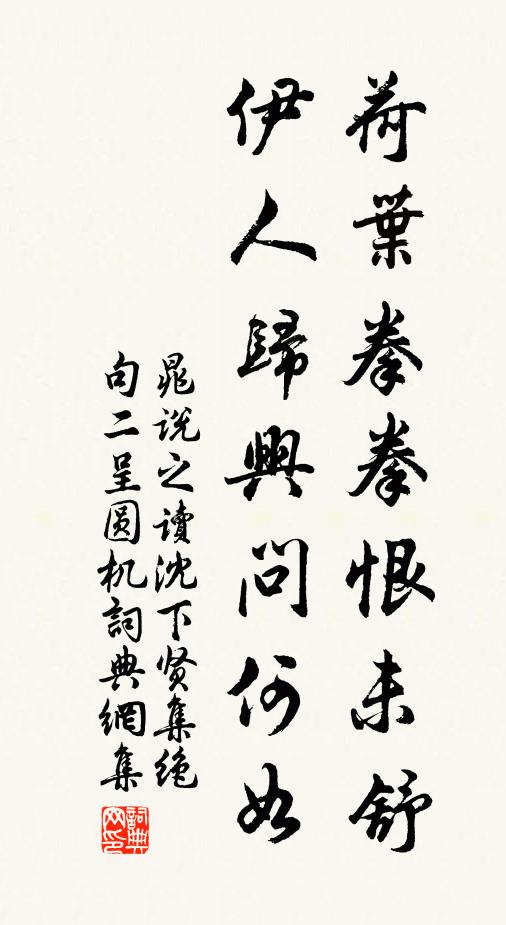 荷葉拳拳恨未舒
伊人歸興問何如
晁説之讀沈下贤集绝
句二呈圆机詞典網集
詞典
网印